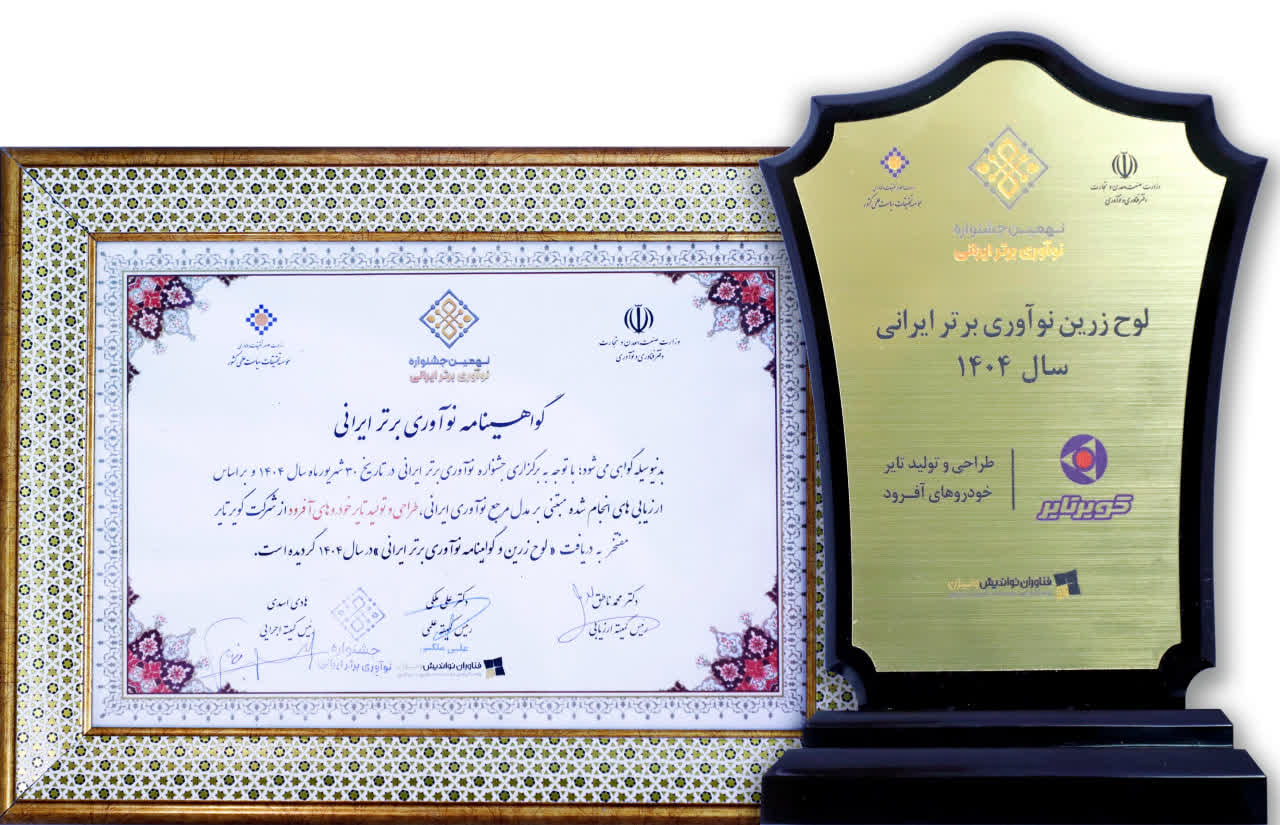 وزارت صنعت، معدن و تجارت
دفتر فناوری و نوآوری
موسسه تحقیقات سیاست علمی کشور
نهمین جشنواره
نوآوری برتر ایرانی
گواهینامه نوآوری برتر ایرانی
بدینوسیله گواهی می شود؛ با توجه به برگزاری جشنواره نوآوری برتر ایرانی در تاریخ ۳۰ شهریورماه سال ۱۴۰۴ و براساس
ارزیابی های انجام شده مبتنی بر مدل مرجع نوآوری ایرانی، طراحی و تولید تایر خودروهای آفرود از شرکت کویر تایر
مفتخر به دریافت «لوح زرین و گواهینامه نوآوری برتر ایرانی» در سال ۱۴۰۴ گردیده است.
دکتر محمد ناطق
رییس کمیته ارزیابی
دکتر علی ملکی
رییس کمیته علمی
علی ملکی
هادی اسدی
رییس کمیته اجرایی
جشنواره
نوآوری برتر ایرانی
فناوران نواندیش
وزارت صنعت، معدن و تجارت
دفتر فناوری و نوآوری
موسسه تحقیقات سیاست علمی کشور
نهمین جشنواره
نوآوری برتر ایرانی
لوح زرین نوآوری برتر ایرانی
سال ۱۴۰۴
کویرتایر
طراحی و تولید تایر
خودروهای آفرود
فناوران نواندیش